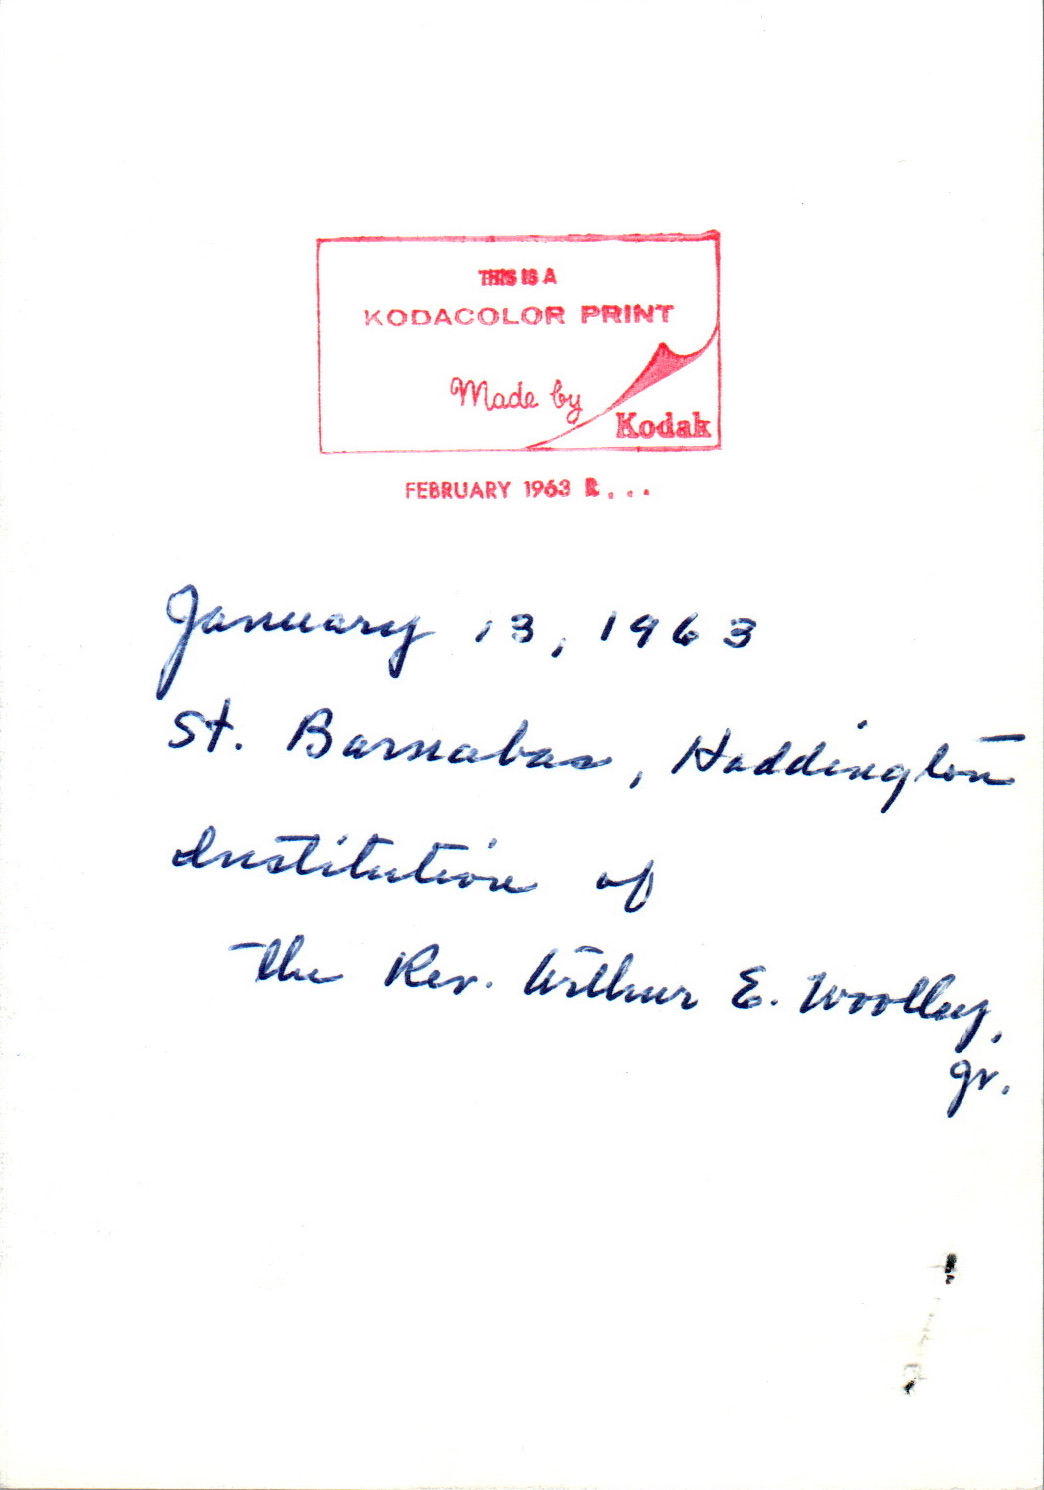 THIS IS A
KODACOLOR PRINT
Made by
Kodak
FEBRUARY 1963 R . . .
January 13, 1963
St. Barnabas, Haddington
Institution of
the Rev. Arthur E. Woolley,
Jr.